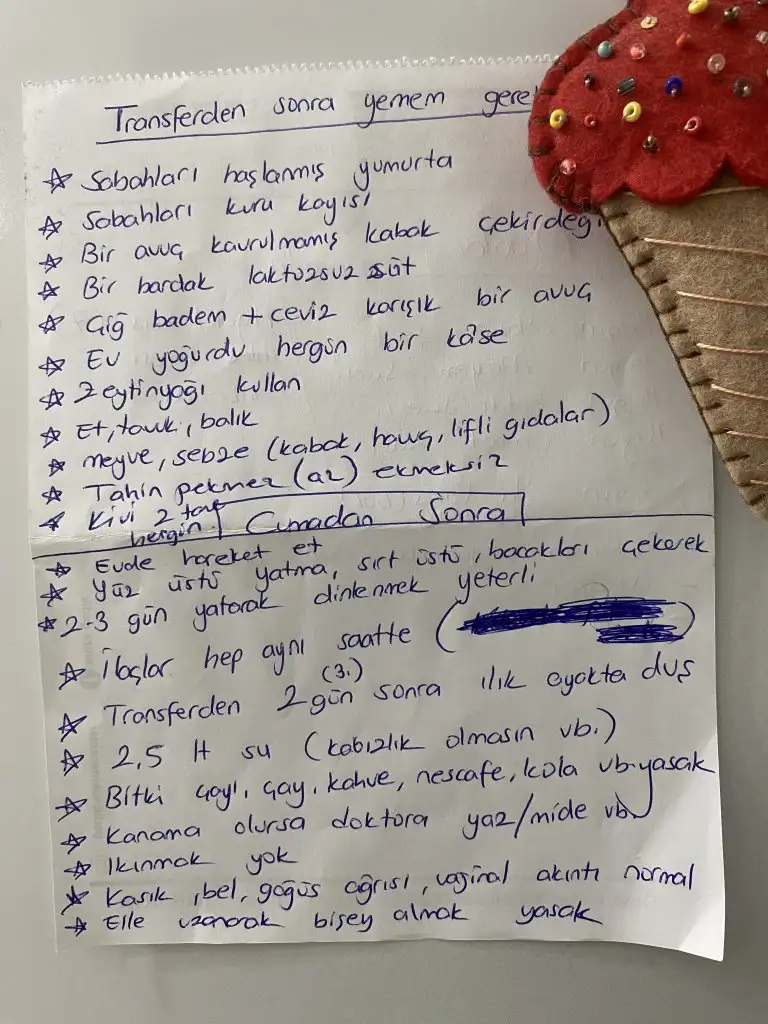 Transferden sonra yemem gere
☆ Sabahları haşlanmış yumurta
☆ Sabahları kuru kayısı
☆ Bir avuç kavrulmamış kabak çekirdeği
☆ Bir bardak laktozsuz süt
☆ Çiğ badem + ceviz karışık bir avuç
☆ Ev yoğurdu hergün bir kâse
☆ Zeytinyağı kullan
☆ Et, tavuk, balık
☆ meyve, sebze (kabak, havuç, lifli gıdalar)
☆ Tahin pekmez (az) ekmeksiz
☆ Kivi 2 tane hergün.
Cımadan Sonra
☆ Evde hareket et
☆ Yüz üstü yatma, sırt üstü, bacakları çekerek
☆ 2-3 gün yatarak dinlenmek yeterli
☆ İlaçlar hep aynı saatte (
☆ Transferden 2 (3.) gün sonra ılık ayakta duş
☆ 2,5 lt su (kabızlık olmasın vb.)
☆ Bitki çayı, çay, kahve, nescafe, kola vb. yasak
☆ Kanama olursa doktora yaz/mide vb.
☆ Ikınmak yok
☆ Kasık, bel, göğüs ağrısı, vajinal akıntı normal
☆ Elle uzanarak bişey almak yasak